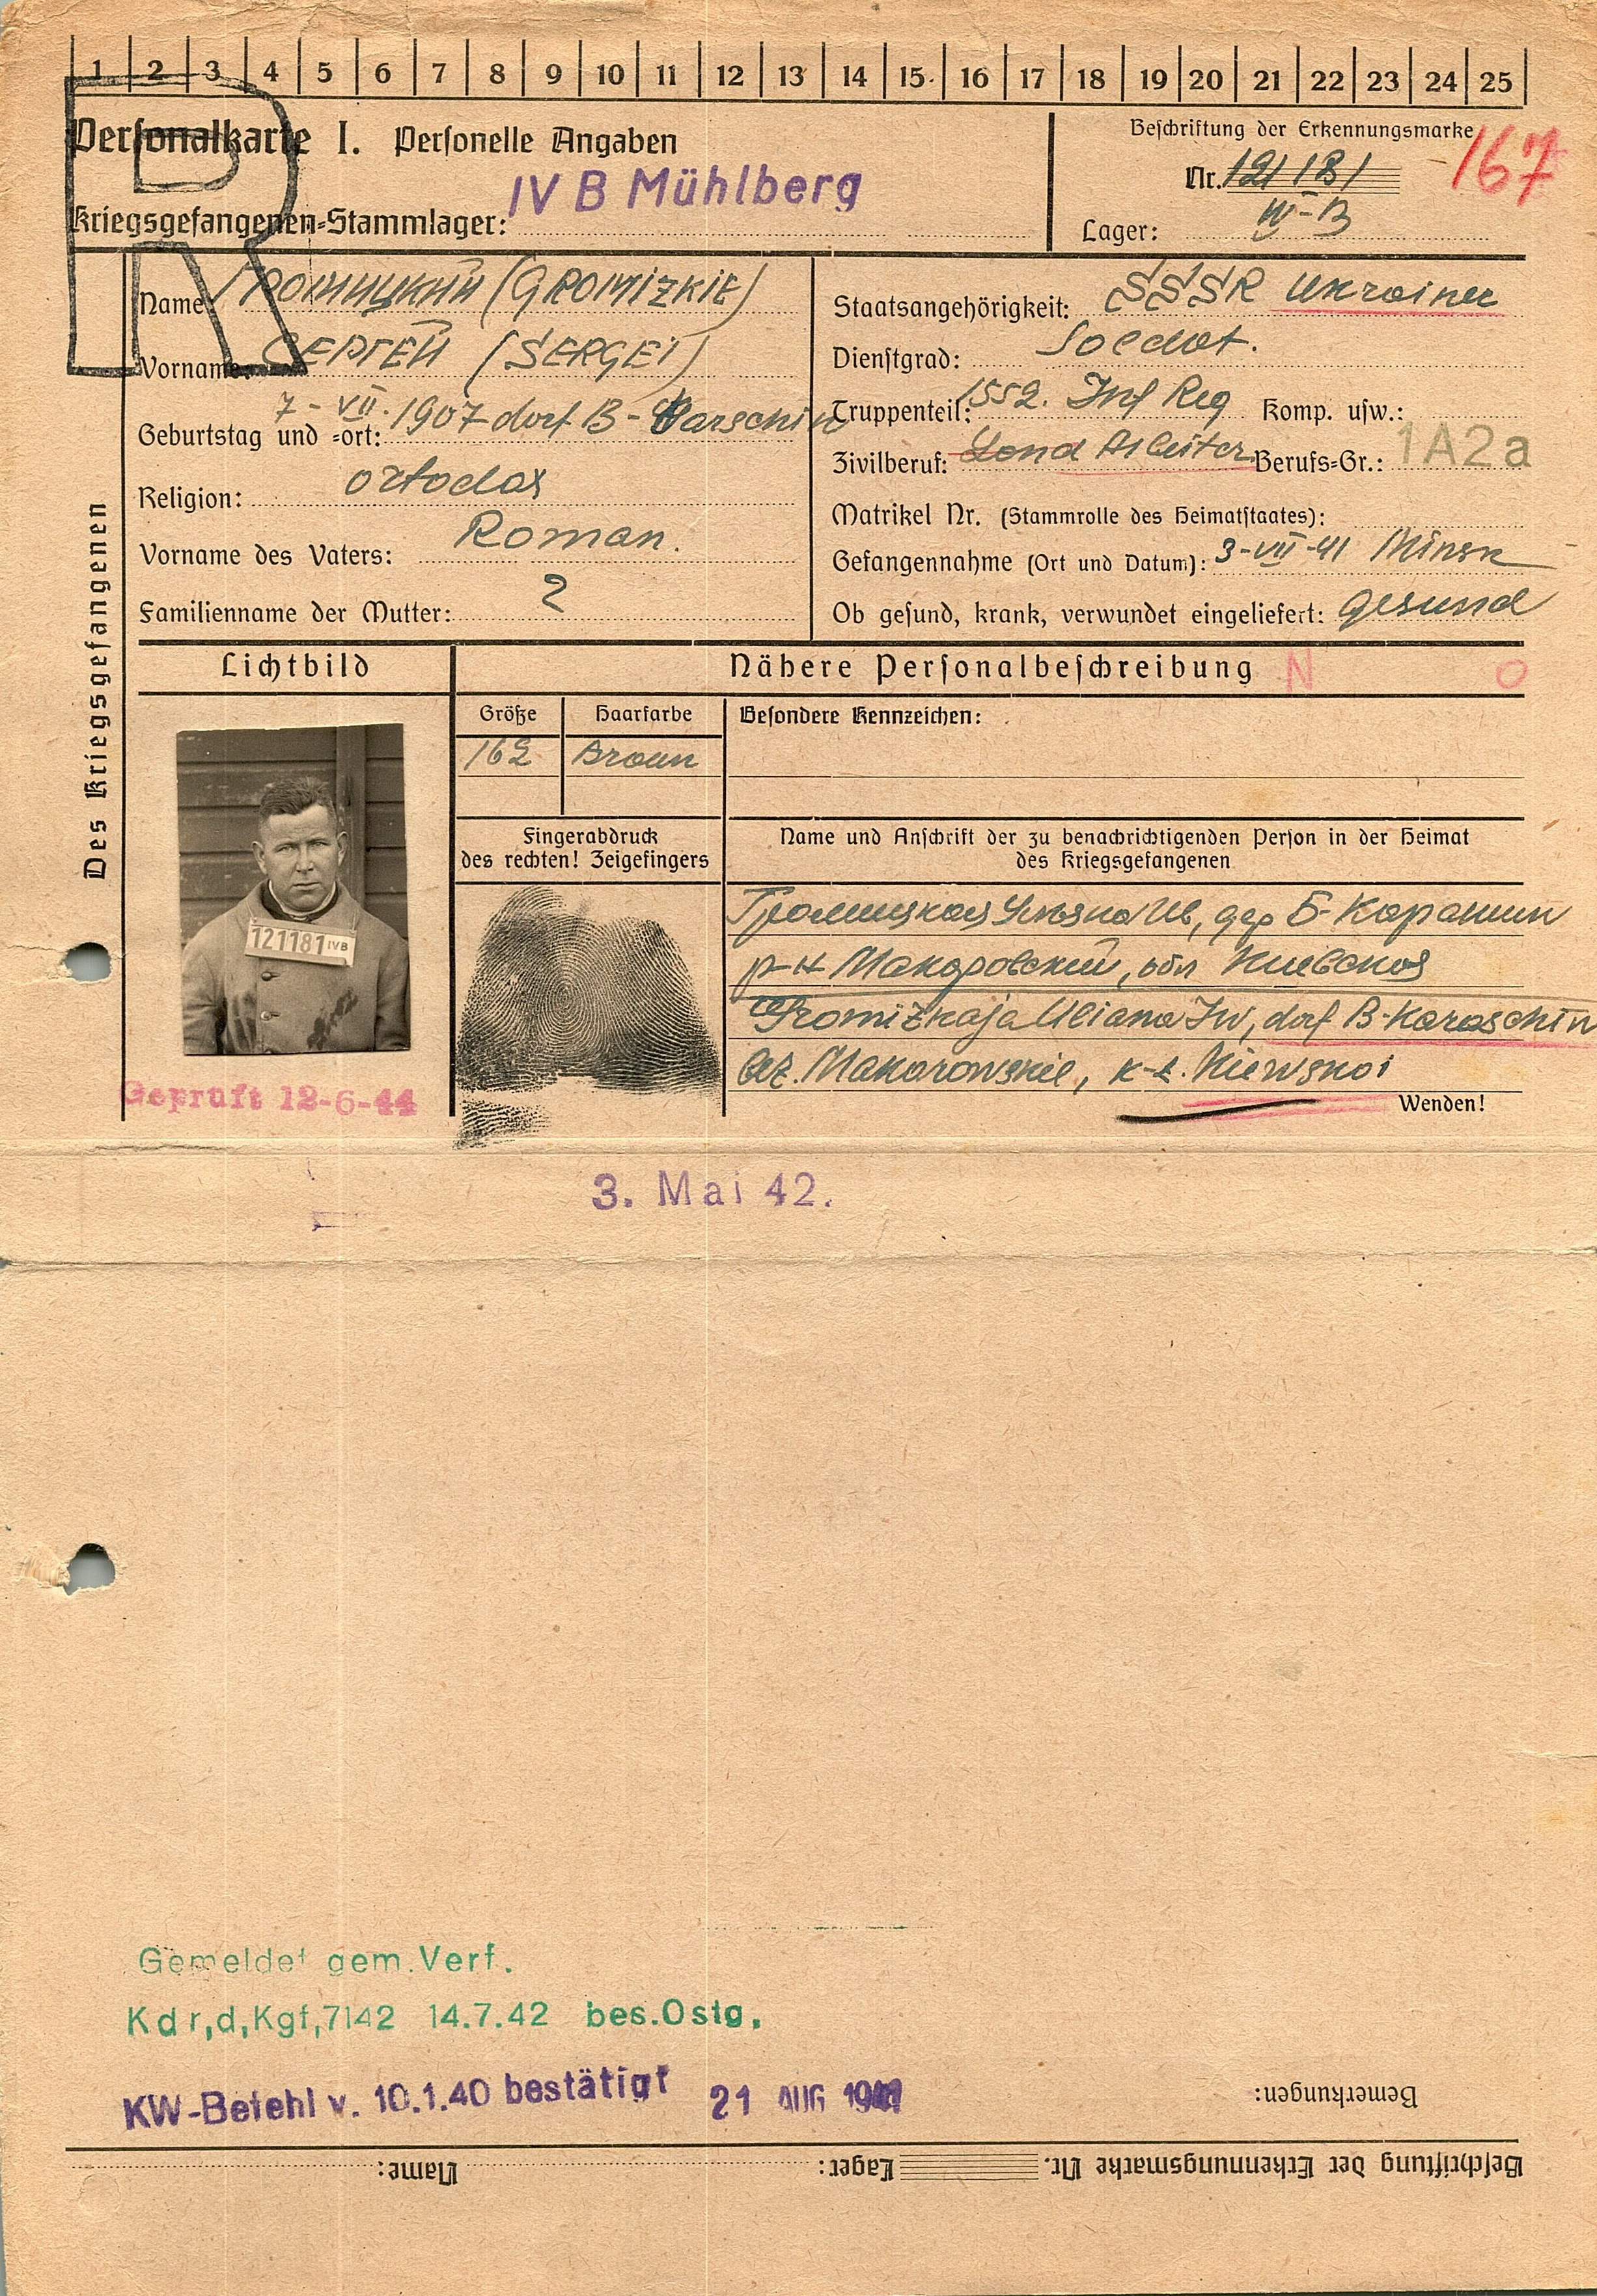 1 2 3 4 5 6 7 8 9 10 11 12 13 14 15 16 17 18 19 20 21 22 23 24 25
R
Personalkarte I. Personelle Angaben
Kriegsgefangenen-Stammlager: IV B Mühlberg
Beschriftung der Erkennungsmarke
Nr. 121181
167
Lager: IV-B
Des Kriegsgefangenen
Name: Громицкий (GROMIZKIE)
Vorname: СЕРГЕЙ (SERGEI)
Geburtstag und -ort: 7-VII.1907 dorf B-Karschin
Religion: ortodox
Vorname des Vaters: Roman.
Familienname der Mutter: ?
Staatsangehörigkeit: SSSR Ukrainer
Dienstgrad: Soldat.
Truppenteil: 1552. Inf Reg Komp. usw.:
Zivilberuf: Land Arbeiter Berufs-Gr.: 1A2a
Matrikel Nr. (Stammrolle des Heimatstaates):
Gefangennahme (Ort und Datum): 3-VII-41 Minsk
Ob gesund, krank, verwundet eingeliefert: gesund
Lichtbild
Nähere Personalbeschreibung N O
Größe Haarfarbe Besondere Kennzeichen:
162 Braun
121181 IVB
Fingerabdruck
des rechten! Zeigefingers
Name und Anschrift der zu benachrichtigenden Person in der Heimat
des Kriegsgefangenen
Громицкая Ульяна Ив, дер Б-Карашин
р-н Макаровский, обл Киевская
Gromizkaja Uliana Iw, dorf B-Karaschin
bez. Makarowskie, k-t. Kiewskoi
Wenden!
Geprüft 12-6-44
3. Mai 42.
Gemeldet gem. Verf.
Kdr,d,Kgf,7142 14.7.42 bes.Ostg,
KW-Befehl v. 10.1.40 bestätigt 21 AUG
Bemerkungen:
Beschriftung der Erkennungsmarke Nr. Lager: Name: